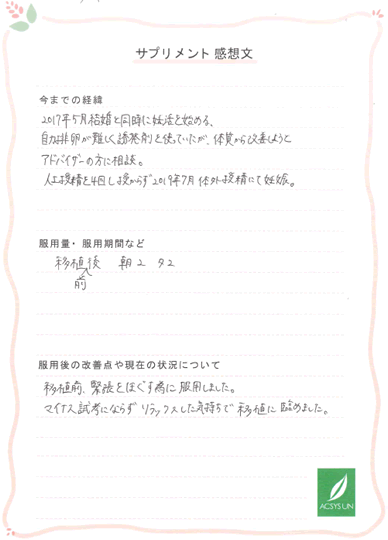 サプリメント 感想文
今までの経緯
2017年5月結婚と同時に妊活を始める、
自力排卵が難しく誘発剤を使っていたが、体質から改善しようと
アドバイザーの方に相談。
人工授精を4回し授からず2019年7月体外授精にて妊娠。
服用量・服用期間など
移植後 朝2 夕2
前
服用後の改善点や現在の状況について
移植前、緊張をほぐす為に服用しました。
マイナス試考にならずリラックスした気持ちで移植に臨めました。
ACSYSUN